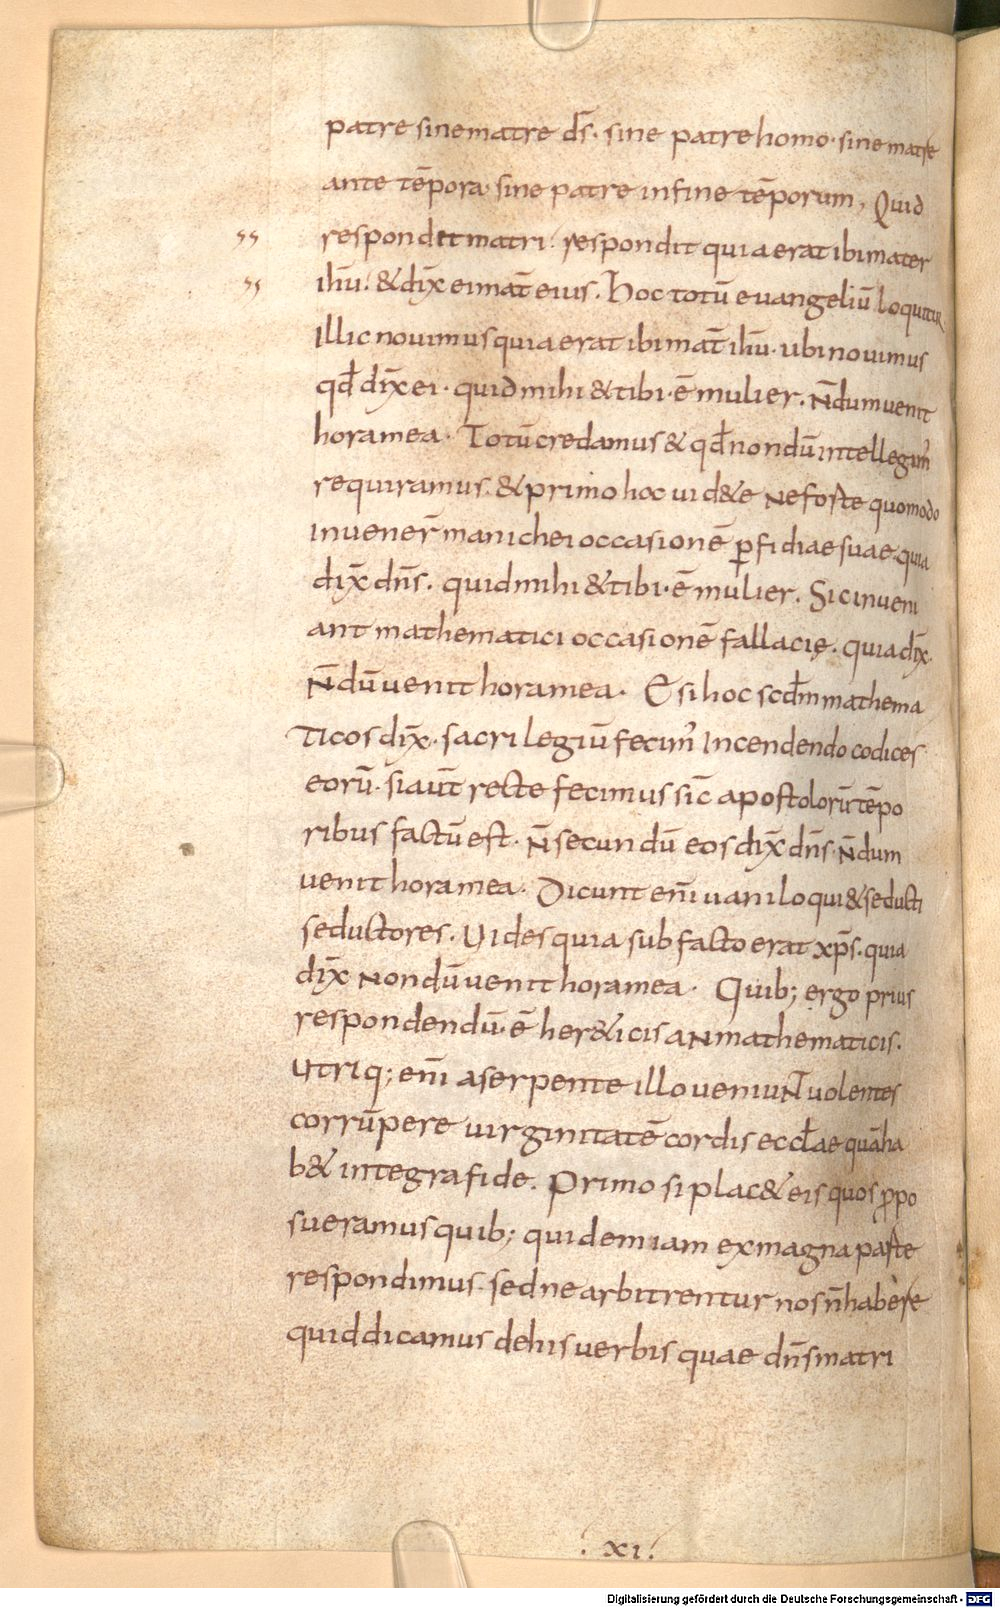 patre sine matre d̄s. sine patre homo. sine matre
ante tēpora. sine patre in fine tēporum, Quid
respondet matri. respondit quia erat ibi mater
ihū. & dix̄ ei mat̄ eius. Hoc totū euangeliū loquitur
Illic nouimus quia erat ibi mat̄ ihū. ubi nouimus
qđ dix̄ ei. quid mihi & tibi. ē mulier. N̄dum uenit
hora mea. Totū credamus & qđ nondū intellegim̄
requiramus. & primo hoc uid&e Ne forte quomodo
inuener̄ manichei occasionē ꝑfidiae suae. quia
dix̄ dn̄s. quid mihi & tibi. ē mulier. Sic inueni
ant mathematici occasionē fallacię. quia dix̄.
N̄dū uenit hora mea. Et si hoc scđm mathema
ticos dix̄. sacrilegiū fecim̄ Incendendo codices
eorū. si aut̄ recte fecimus sic̄ apostolorū tēpo
ribus factū est. N̄ secundū eos dix̄ dn̄s. N̄dum
uenit hora mea. Dicunt eni̅ uaniloqui & seducti
seductores. Uides quia sub facto erat xp̄s. quia
dix̄ Nondū uenit hora mea. Quib; ergo prius
respondendū. ē her&icis aN mathematicis.
Utriq; eni̅ a serpente illo ueniuNT uolentes
corrūpere uirginitatē cordis eccłae quā ha
b& integra fide. Primo si plac& eis quos ꝓpo
sueramus quib; quidem iam ex magna parte
respondimus. sed ne arbitrentur nos n̄ habere
quid dicamus de his uerbis quae dn̄s matri
. XI.
Digitalisierung gefördert durch die Deutsche Forschungsgemeinschaft - DFG